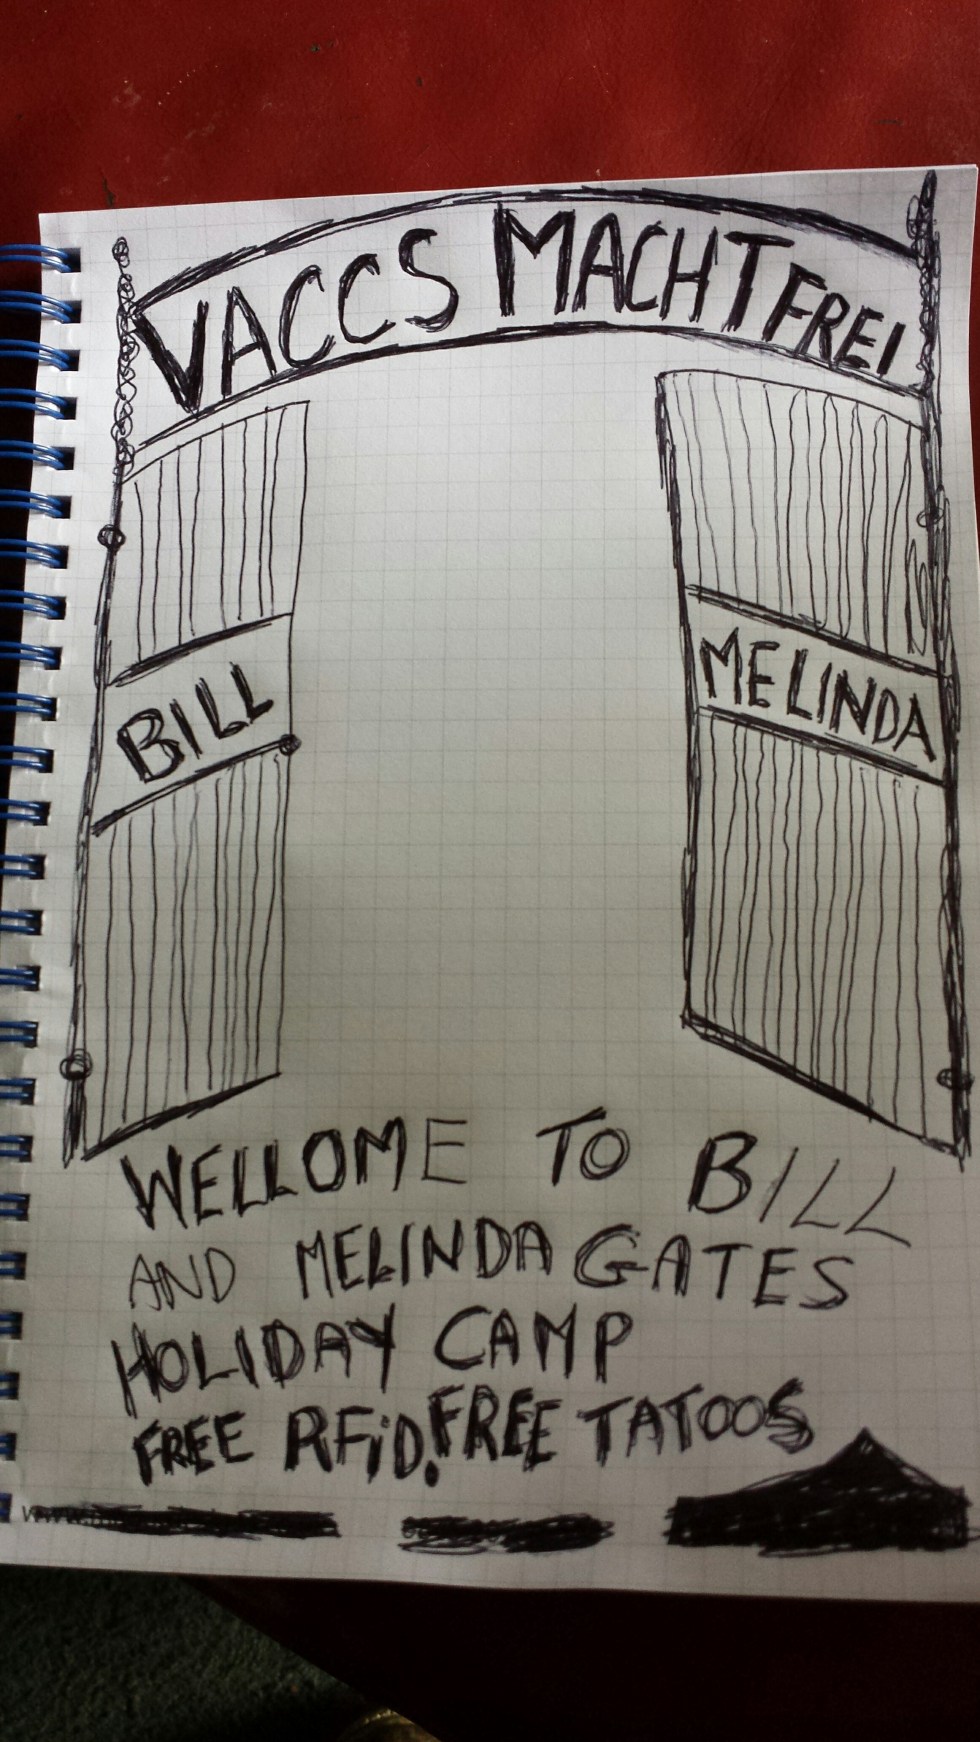 VACCS MACHT FREI
BILL
MELINDA
WELLOME TO BILL
AND MELINDA GATES
HOLIDAY CAMP
FREE RFiD. FREE TATOOS